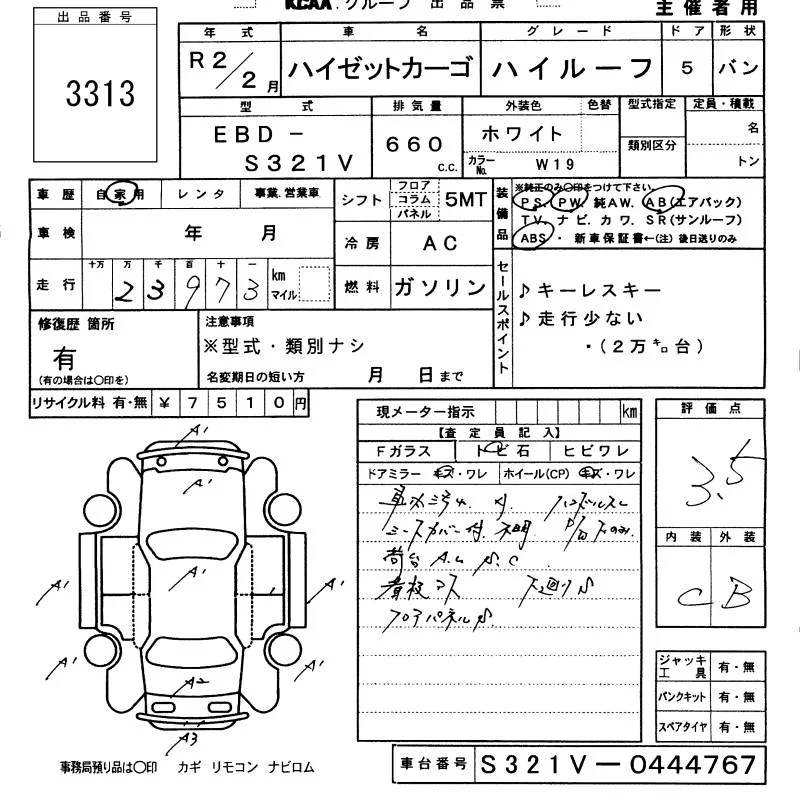 KCAA.グループ 出品票 主催者用
出品番号
3313
年式 車名 グレード ドア 形状
R2/2月 ハイゼットカーゴ ハイルーフ 5 バン
型式 排気量 外装色 色替 型式指定 定員・積載
EBD-
S321V
660 c.c.
ホワイト
カラーNo. W19
類別区分
名
トン
車歴 自家用 レンタ 事業.営業車
車検 年 月
走行 十万 万 千 百 十 一
2 3 9 7 3 km マイル
シフト フロア コラム パネル 5MT
冷房 AC
燃料 ガソリン
装備品
※純正のみ○印をつけて下さい。
PS. PW. 純AW. AB(エアバック)
TV. ナビ. カワ. SR(サンルーフ)
ABS・ 新車保証書←(注) 後日送りのみ
セールスポイント
♪キーレスキー
♪走行少ない
・(2万㌔台)
修復歴 箇所
有
(有の場合は○印を)
注意事項
※型式・類別ナシ
名変期日の短い方 月 日まで
リサイクル料 有・無 ¥ 7510円
現メーター指示 km
【査定員記入】
Fガラス トビ石 ヒビワレ
ドアミラー キズ・ワレ ホイール(CP) キズ・ワレ
シースカバー付 不明
荷台 A.U S.C
看板コス 下廻りS
フロアパネルS.
評価点
3.5
内装 外装
C B
A'
A'
A'
A'
A'
A'
A'
A2
A3
ジャッキ工具 有・無
パンクキット 有・無
スペアタイヤ 有・無
事務局預り品は○印 カギ リモコン ナビロム
車台番号 S321V-0444767